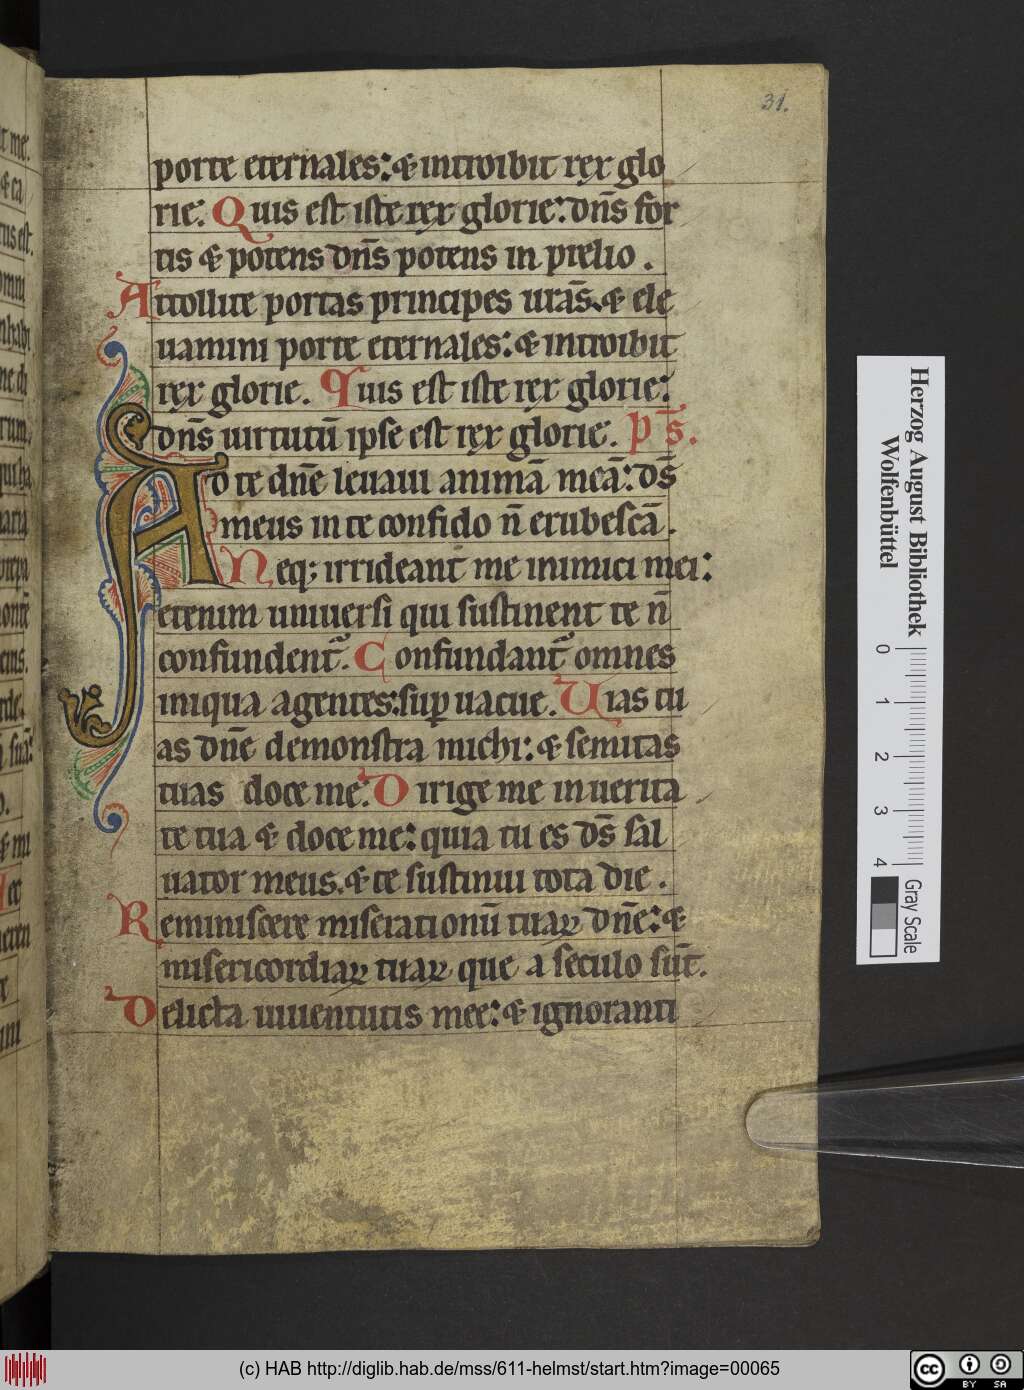 31.
porte eternales: & introibit rex glo
rie: Quis est iste rex glorie: dn̄s for
tis & potens dn̄s potens in prelio.
Attollite portas principes urās. & ele
uamini porte eternales: & introibit
rex glorie. Quis est iste rex glorie:
dn̄s uirtutū ipse est rex glorie. p̄s.
Ad te dn̄e leuaui animā meā: ds̄
meus in te confido n̄ erubescā.
Neq; irrideant me inimici mei:
etenim uniuersi qui sustinent te n̄
confundent᷑. Confundant᷑ omnes
iniqua agentes: suꝑ uacue. Uias tu
as dn̄e demonstra michi: & semitas
tuas doce me. Dirige me in uerita
te tua & doce me: quia tu es ds̄ sal
uator meus. & te sustinui tota die.
Reminiscere miserationū tuaꝝ dn̄e: &
misericordiaꝝ tuaꝝ que a seculo sūt.
Delicta iuuentutis mee: & ignoranti
Herzog August Bibliothek
Wolfenbüttel
0 1 2 3 4
Gray Scale
(c) HAB http://diglib.hab.de/mss/611-helmst/start.htm?image=00065
cc BY SA